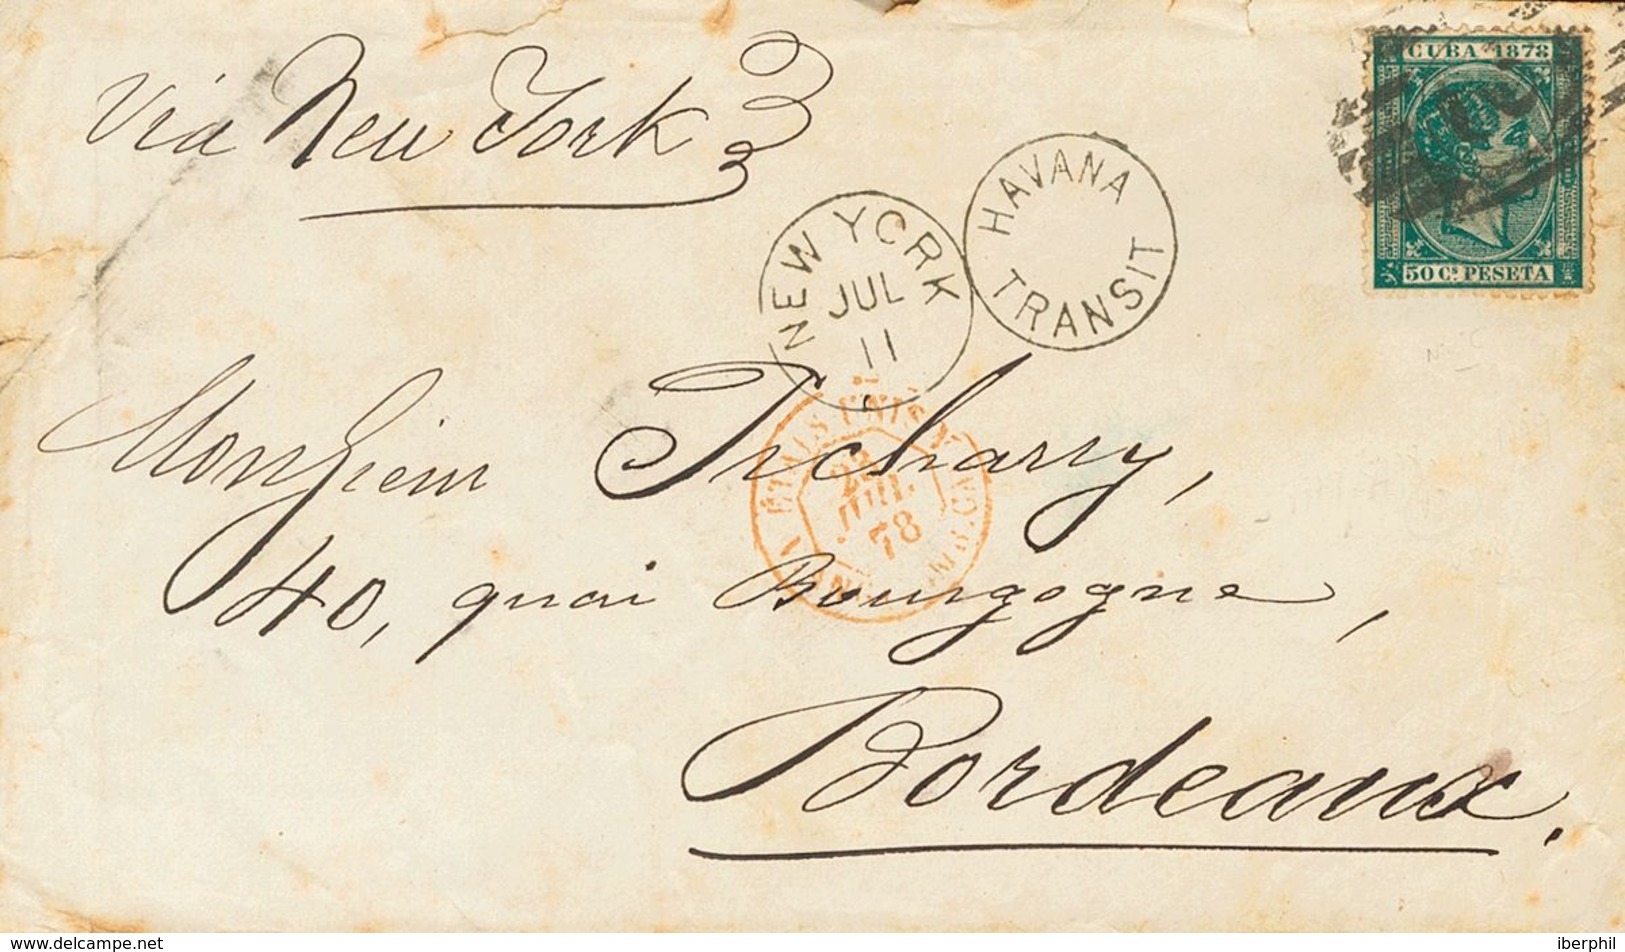 Via New York
CUBA 1878
50 Cs PESETA
HAVANA
TRANSIT
NEW YORK
JUL
11
ETATS UNIS
23
JUIL
78
Monsieur Tricharry,
40, quai Bourgogne,
Bordeaux.
www.delcampe.net
iberphil